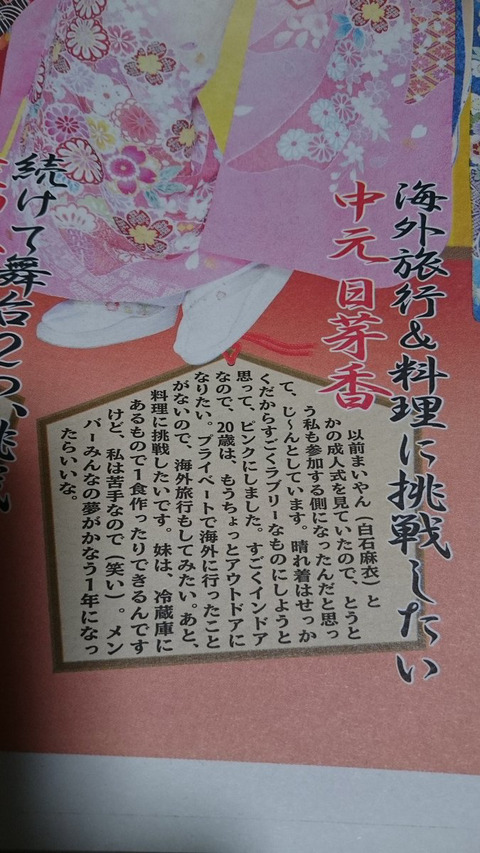 海外旅行&料理に挑戦したい
中元 日芽香
以前まいやん（白石麻衣）と
かの成人式を見ていたので、とうと
う私も参加する側になったんだと思っ
て、じ〜んとしています。晴れ着はせっか
くだからすごくラブリーなものにしようと
思って、ピンクにしました。すごくインドア
なので、20歳は、もうちょっとアウトドアに
なりたい。プライベートで海外に行ったこと
がないので、海外旅行もしてみたい。あと、
料理に挑戦したいです。妹は、冷蔵庫に
あるもので1食作ったりできるんです
けど、私は苦手なので（笑い）。メン
バーみんなの夢がかなう1年になっ
たらいいな。
続けて舞台2つ、挑戦